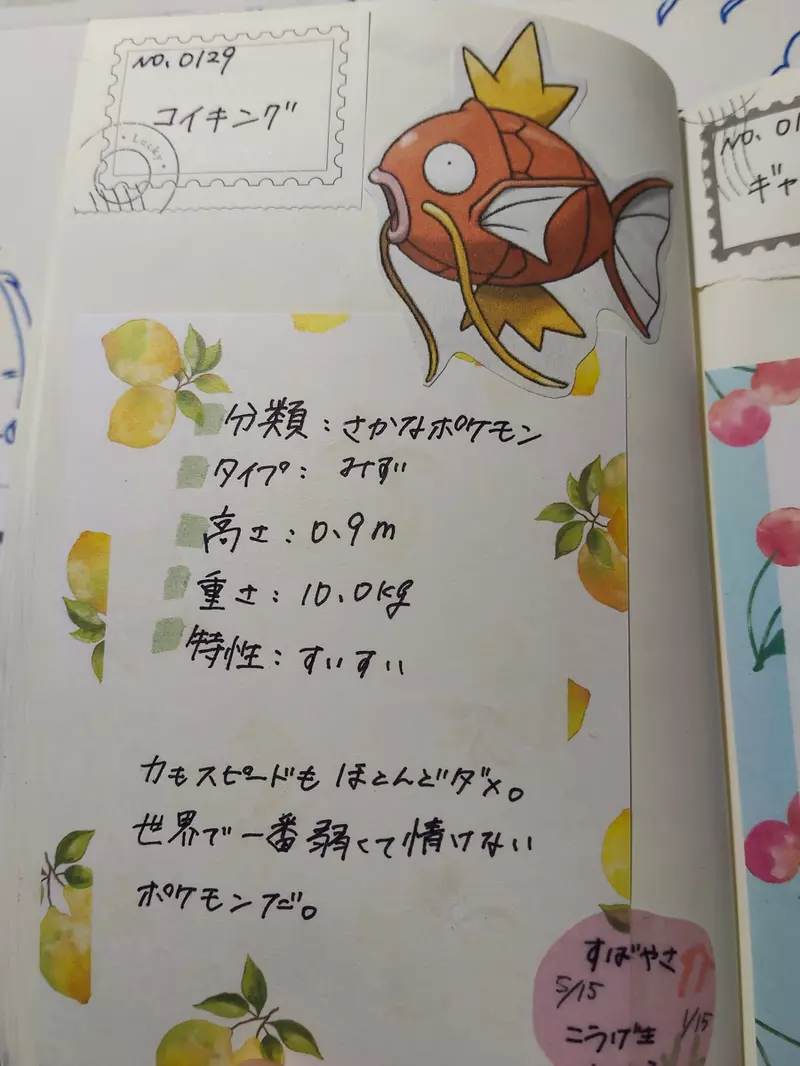 NO. 0129
コイキング
Lucky
分類：さかなポケモン
タイプ：みず
高さ：0.9m
重さ：10.0kg
特性：すいすい
力もスピードもほとんどダメ。
世界で一番弱くて情けない
ポケモンだ。
すばやさ
5/15
こうげき
1/15
NO. 01
ギャ